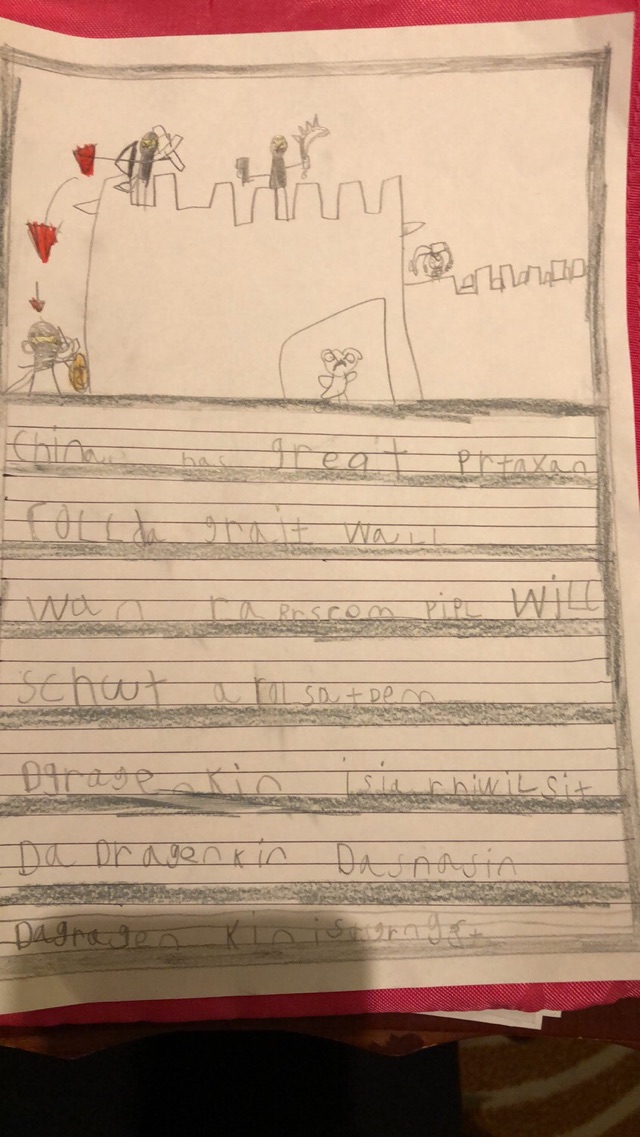 China has great Prtaxan
rollda grait wall
wan raBrscom PiPL Will
schwt a rolsatDem
Dgragenkin isia rhiwilsit
Da Dragenkin Dasnasin
Dagragen Kin